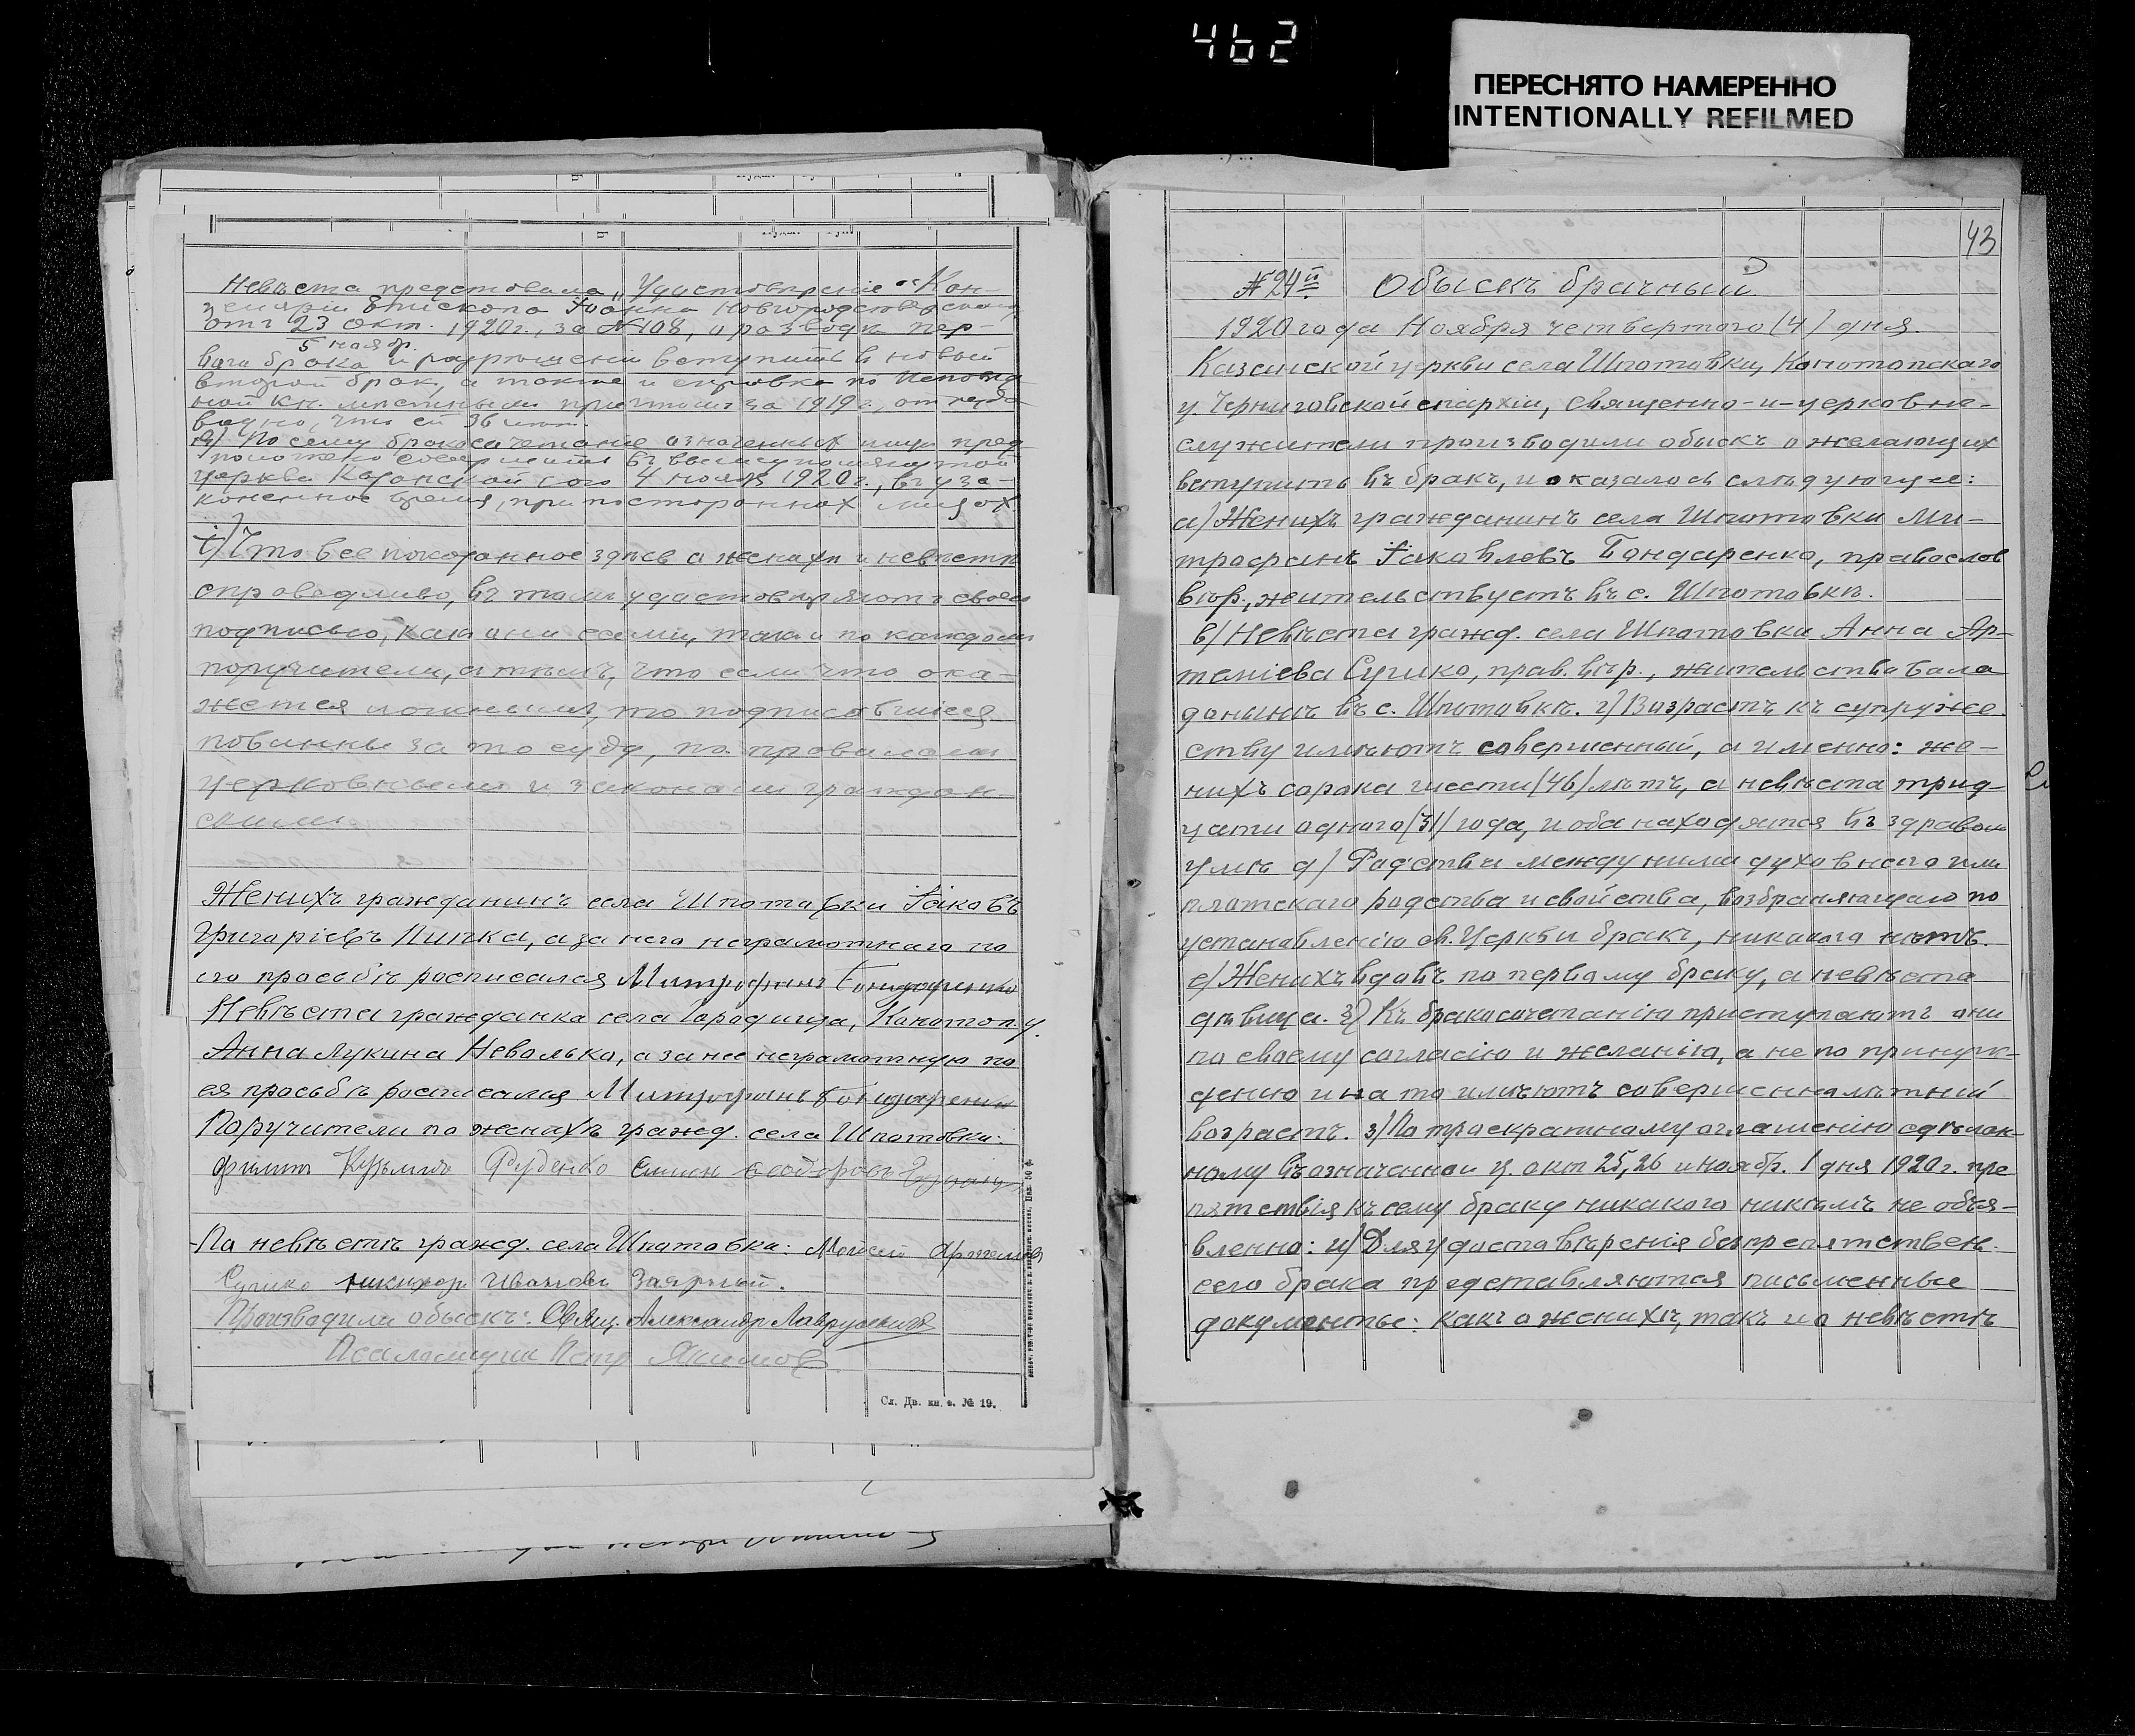 462
ПЕРЕСНЯТО НАМЕРЕННО
INTENTIONALLY REFILMED
Невѣста представила „Удостовѣреніе“ Кан-
целяріи Епископа Іоанна Новгородсѣверскаго
отъ 23 Окт. 1920 г., за №108, о разводѣ пер-
5 нояб.
ваго брака и разрѣшеніи вступить въ новый
второй брак, а также и справка по Исповѣд
ной кн. мѣстным причтом за 1919 г., откуда
видно, что ей 36 лѣт.
По сему бракосочетаніе означенных лицъ пред
положено совершить въ вышеупомянутой
церкви Казанской сого 4 нояб 1920 г., въ уза-
коненное время, при посторонних лицах
і) Что все показанное здѣсь о женихѣ и невѣстѣ
справедливо, въ томъ удостовѣряютъ своею
подписью, какъ они сами, такъ и по каждомъ
поручители, а тѣмъ, что если что ока-
жется ложнымъ, то подписавшіеся
повинны за то суду, по правиламъ
церковнымъ и законамъ граждан-
скимъ
Женихъ гражданинъ села Шпотовки Іаковъ
Григоріевъ Пипка, а за него неграмотнаго по
его просьбѣ росписался Митрофанъ Бондаренко
Невѣста гражданка села Городища, Конотоп. у.
Анна Лукина Неволько, а за нее неграмотную по
ея просьбѣ росписался Митрофанъ Бондаренко
Поручители по женихѣ гражд. села Шпотовки:
Филипъ Кузьмичъ Руденко Симон Феодоровъ
По невѣстѣ гражд. села Шпотовки: Моисей Артемовъ
Сушко Никифор Ивановъ Заярный.
Производили обыскъ: Свящ. Александр Лаврусевичъ
Псаломщик Петр Якимов
Сл. Дв. кн. ф. № 19.
43
№24й Обыскъ брачный
1920 года Ноября четвертого (4) дня
Казанской церкви села Шпотовки, Конотопскаго
у. Черниговской епархіи, священно-и-церковно-
служители производили обыскъ о желающих
вступить въ бракъ, и оказалось слѣдующее:
а) Женихъ гражданинъ села Шпотовки Ми-
трофанъ Іаковлевъ Бондаренко, православ
вѣр., жительствуетъ въ с. Шпотовкѣ.
в) Невѣста гражд. села Шпотовки Анна Ар-
теміева Сушко, прав. вѣр., жительствовала
донынѣ въ с. Шпотовкѣ. г) Возрастъ къ супруже
ству имѣютъ совершенный, а именно: же-
нихъ сорока шести (46) лѣтъ, а невѣста трид-
цати одного (31) года, и оба находятся въ здравом
умѣ д) Родства между ними духовнаго или
плотскаго родства и свойства, возбраняющаго по
установленію св. Церкви бракъ, никакого нѣтъ.
е) Женихъ вдовъ по первому браку, а невѣста
дѣвица. З) Къ бракосочетанію приступаютъ они
по своему согласію и желанію, а не по принуж-
денію и на то имѣютъ совершеннолѣтній
возрастъ. з) По троекратному оглашенію сдѣлан-
ному въ означенной ц. окт 25, 26 и нояб. 1 дня 1920 г. пре
пятствія къ сему браку никакого никѣмъ не объя-
вленно: и) Для удостовѣренія безпрепятствен.
сего брака представляются письменные
документы: какъ о женихѣ, такъ и о невѣстѣ